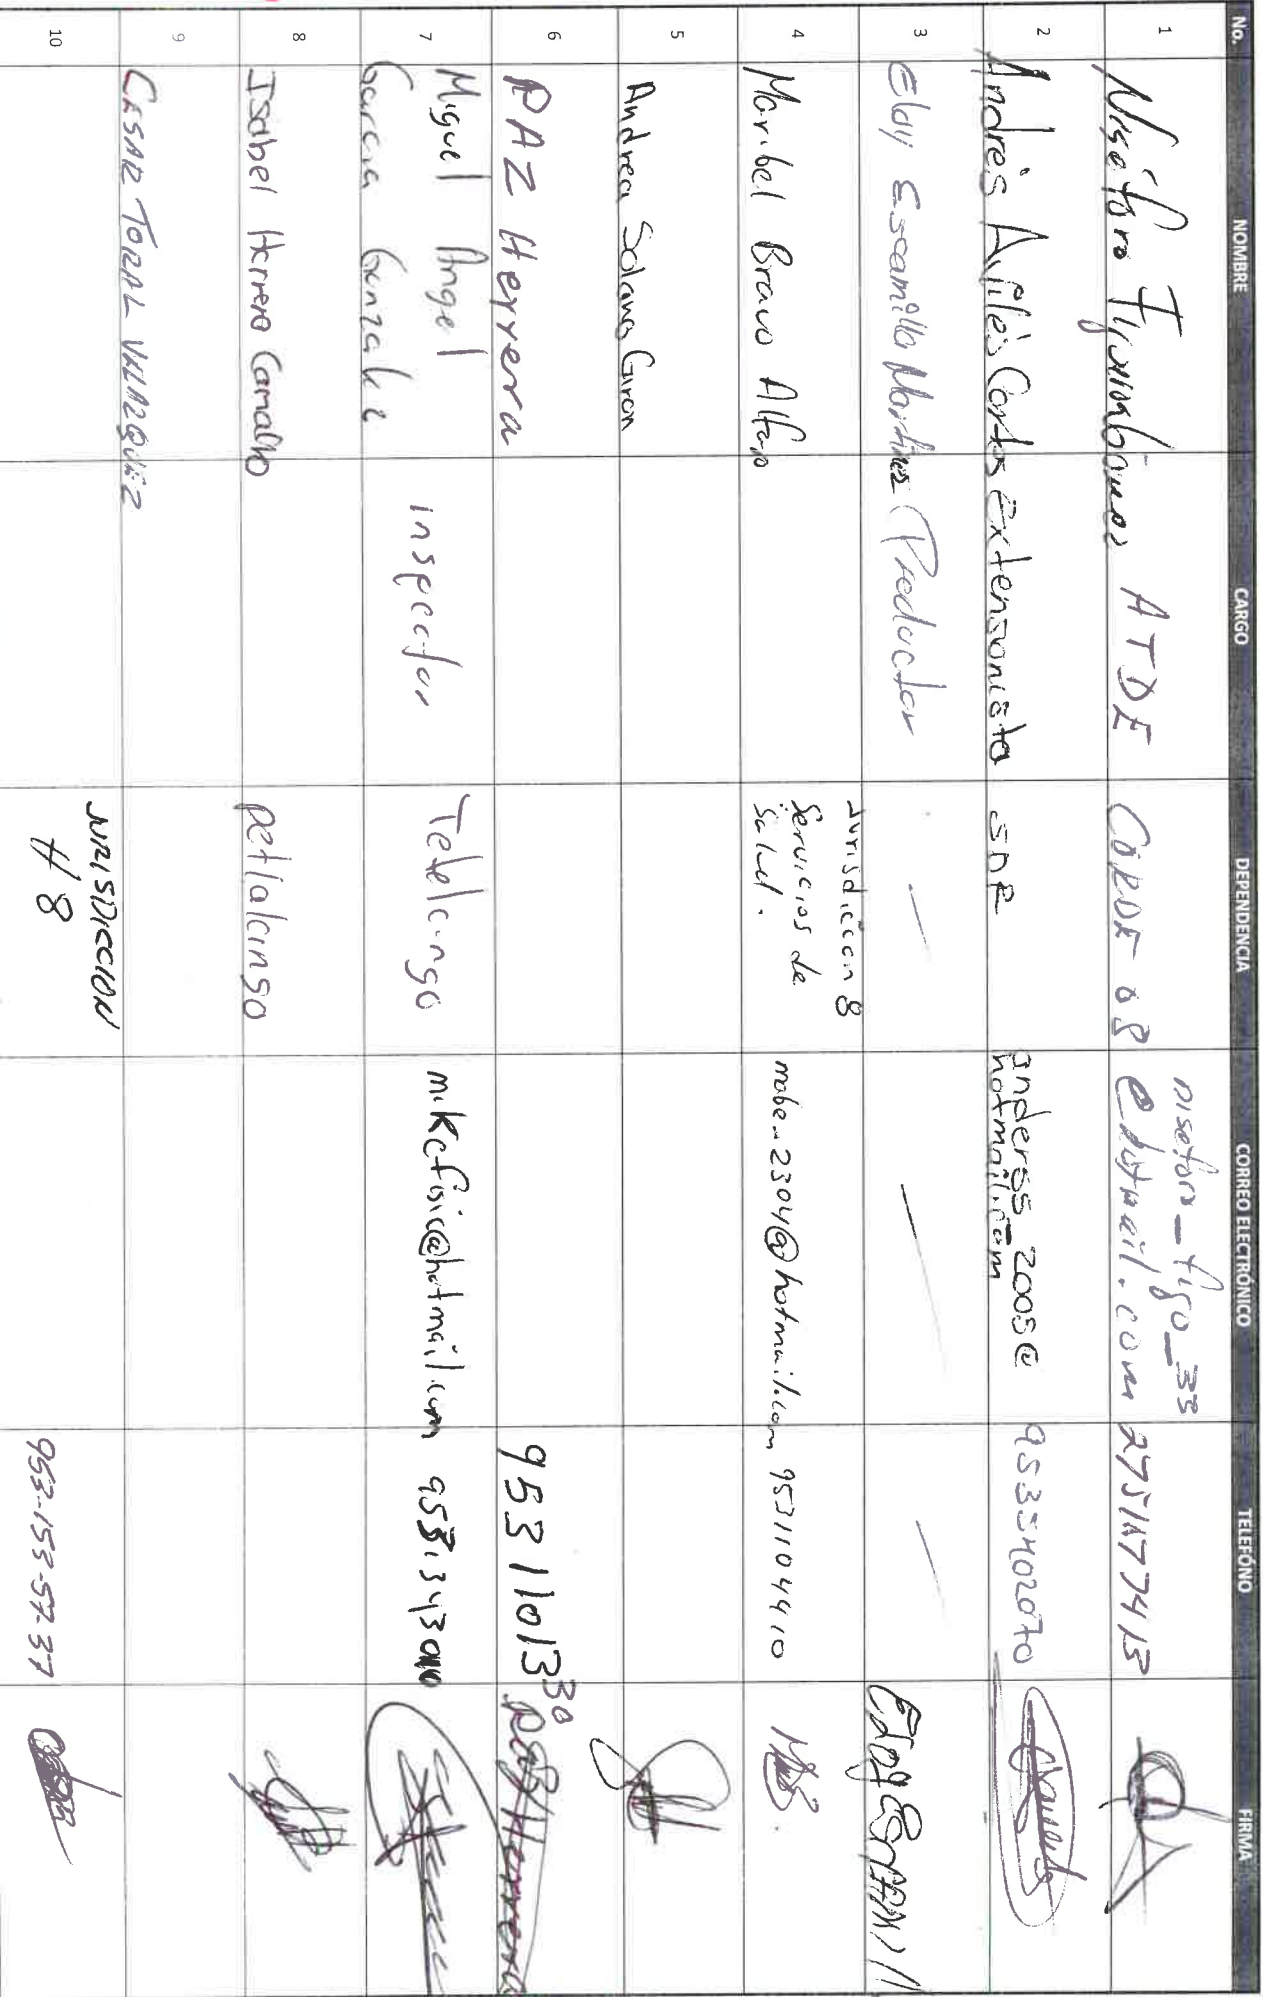 No. NOMBRE CARGO DEPENDENCIA CORREO ELECTRÓNICO TELEFÓNO FIRMA
1 Niséforo ATDE CORDE 08 niseforo_figo_33
@hotmail.com 2751177413
2 Andrés Avilés Cortes extensonista SDR anderss_2005@
hotmail.com 9535402070
3 Eloy Escamilla Martinez Productor — — — Eloy ESCAMILL
4 Maribel Bravo Alfaro Jurisdiccion 8
Servicios de
Salud. mabe_2304@hotmail.com 9531104410
5 Andrea Solano Giron
6 PAZ Herrera 9531101330 Paz Herrera
7 Miguel Angel
Garcia Gonzalez inspector Tetelcingo mikefisic@hotmail.com
8 Isabel Herrera Camacho petlalcingo
9 CESAR TORAL VELAZQUEZ
10 JURISDICCION
#8 953-153-57-37